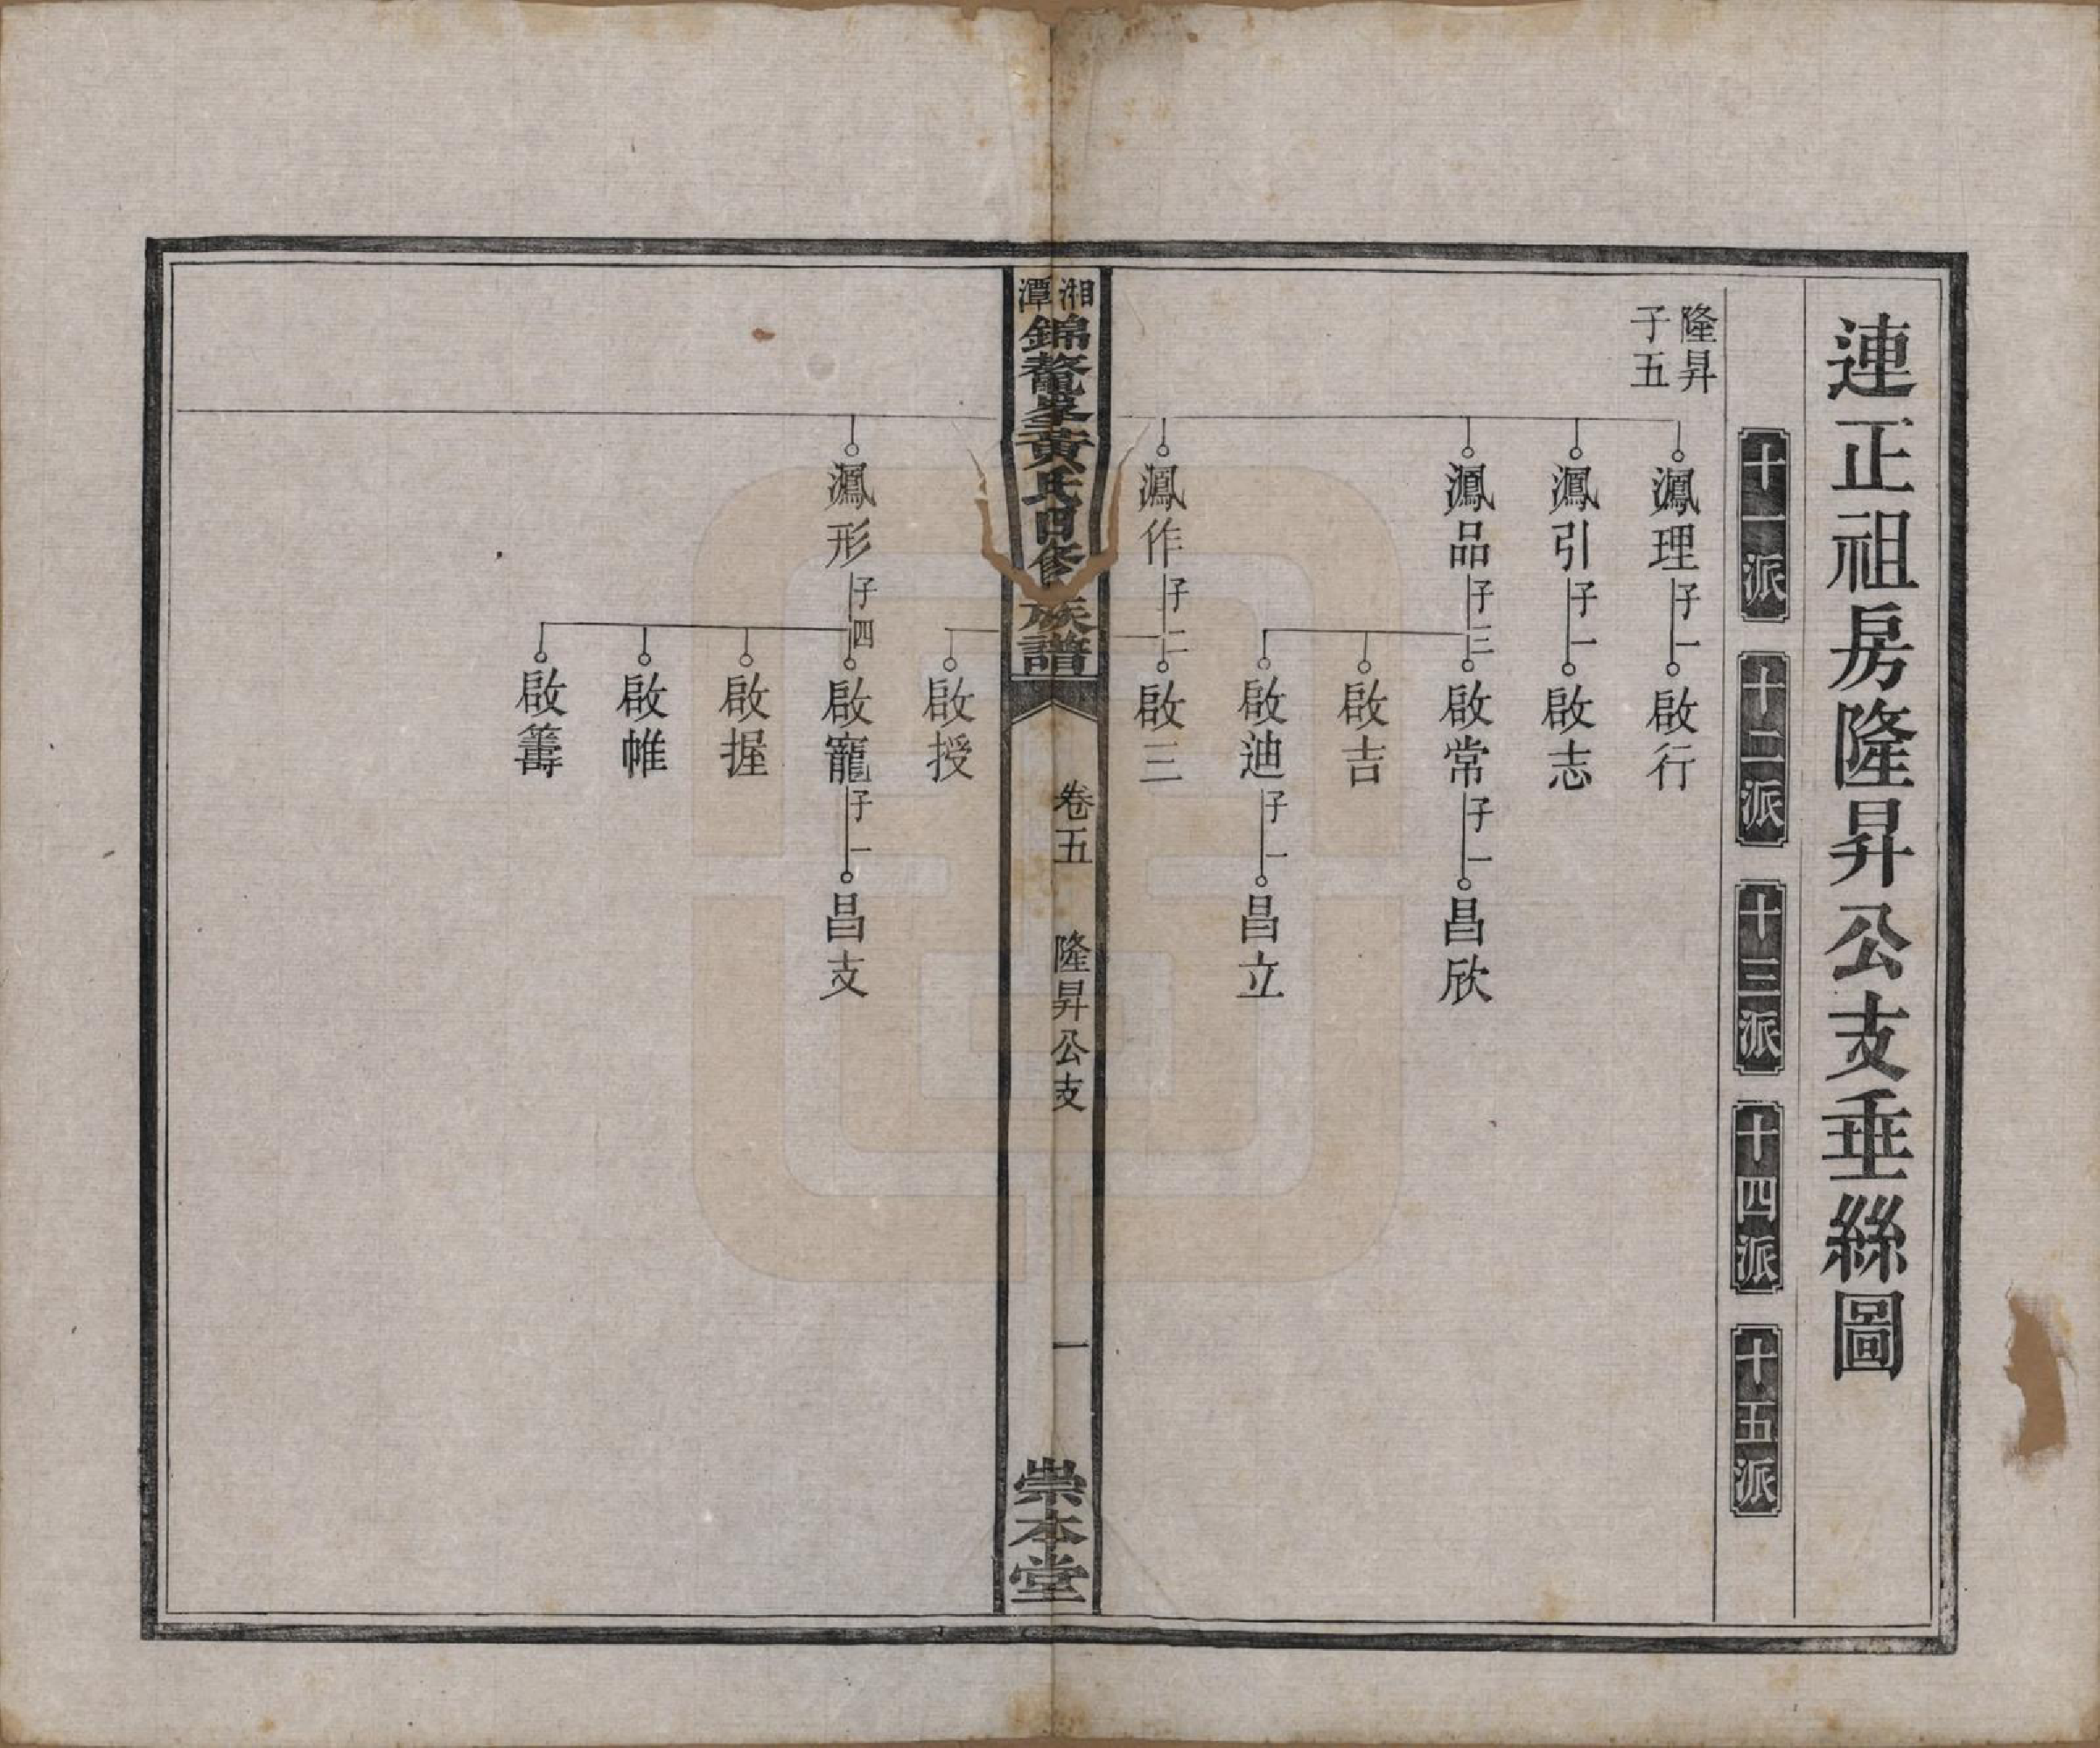 連正祖房隆昇公支垂絲圖
十一派 十二派 十三派 十四派 十五派
隆昇
子五
鳳理 子一 啟行
鳳引 子一 啟志
鳳品 子三 啟常 子一 昌欣
啟吉
啟迪 子一 昌立
鳳作 子二 啟三
湘潭錦鰲峯黃氏四修族譜 卷五 隆昇公支 一 崇本堂
啟授
鳳形 子四 啟寵 子一 昌支
啟握
啟帷
啟籌